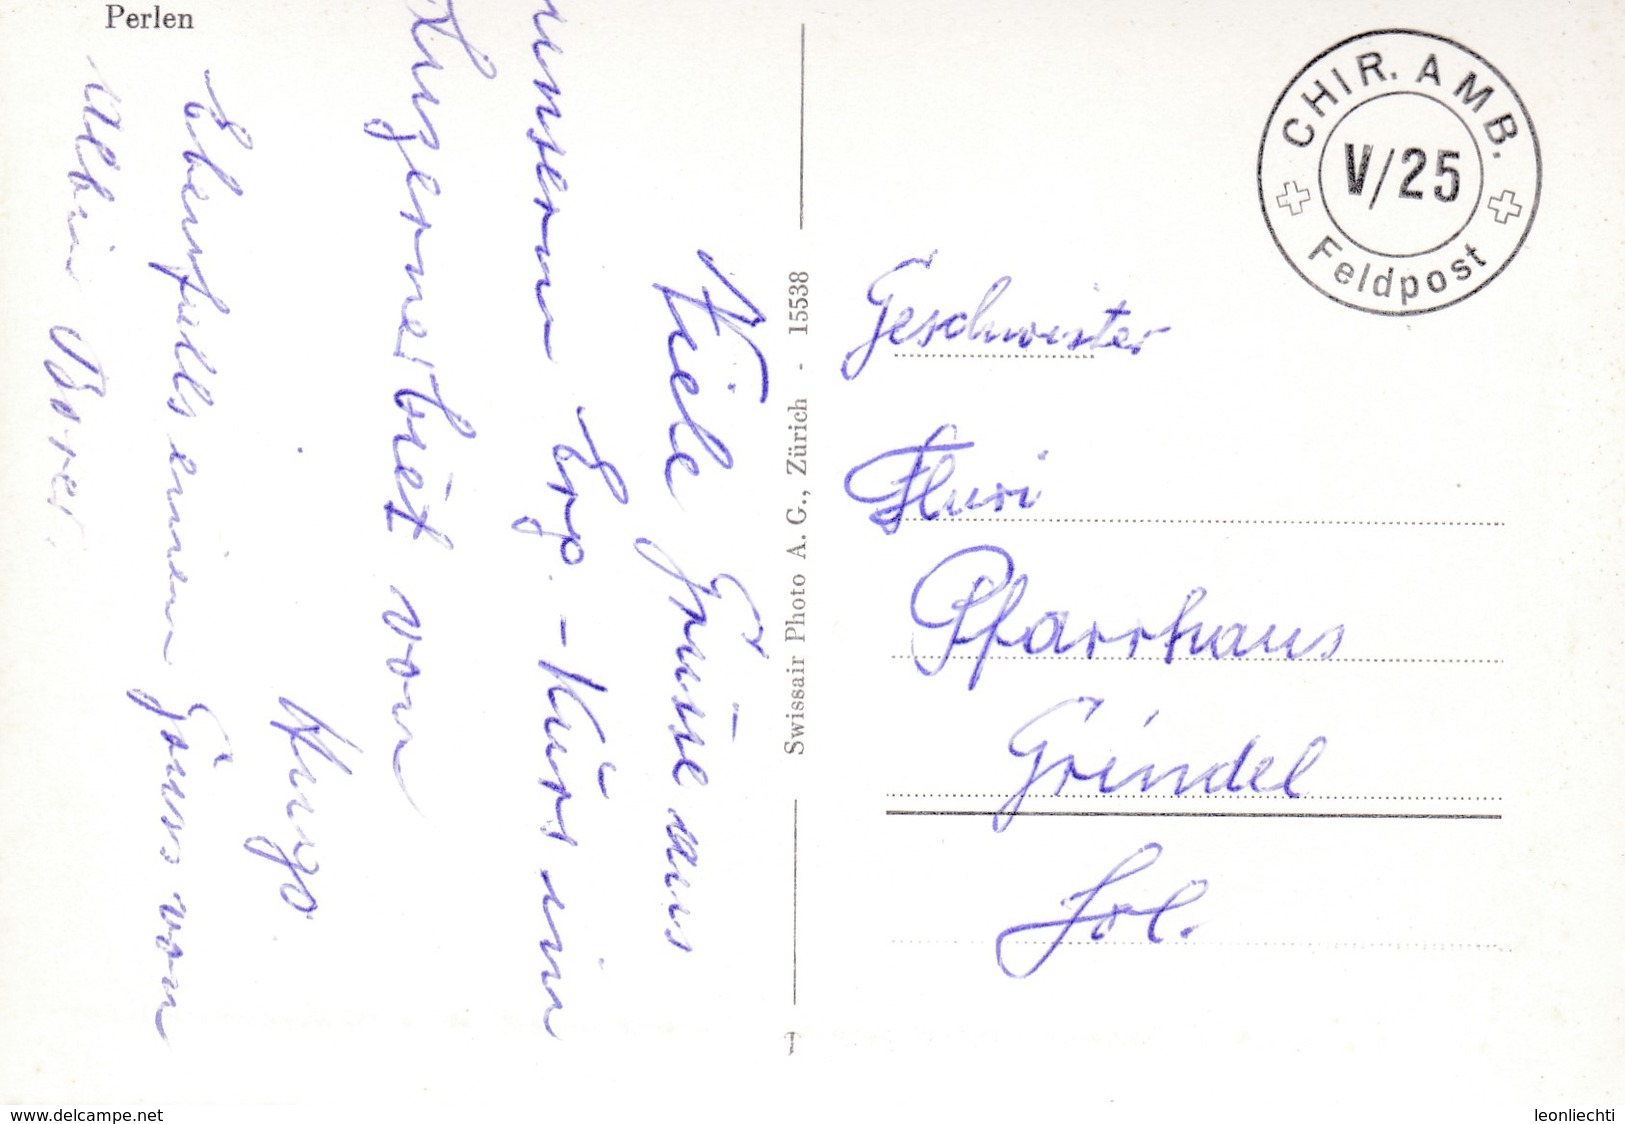 Perlen
Viele Grüsse aus
unserm Erg.-Kurs im
Luzernerbiet von
Hugo
Ebenfalls einen Gruss von
Albin Borer.
Swissair Photo A. G., Zürich - 15538
CHIR. AMB.
V/25
Feldpost
Geschwister
Fluri
Pfarrhaus
Grindel
Sol.
www.delcampe.net
leonliechti